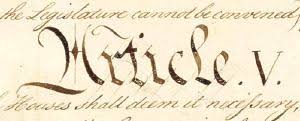 the Legislature cannot be convened
Article. V.
Houses shall deem it necessary,